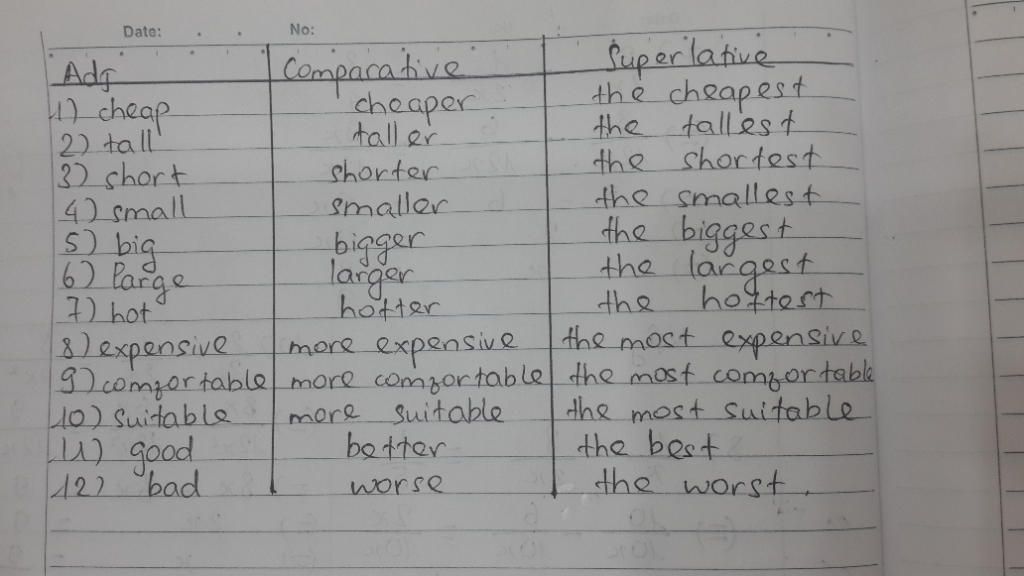 Date: No:
Adj Comparative Superlative
1) cheap cheaper the cheapest
2) tall taller the tallest
3) short shorter the shortest
4) small smaller the smallest
5) big bigger the biggest
6) large larger the largest
7) hot hotter the hottest
8) expensive more expensive the most expensive
9) comfortable more comfortable the most comfortable
10) suitable more suitable the most suitable
11) good better the best
12) bad worse the worst.